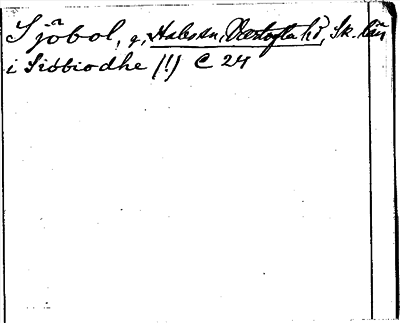 Sjöbol, g, Habo sn, Vartofta hd, Sk. län
i Siöbiodhe (!) C 24